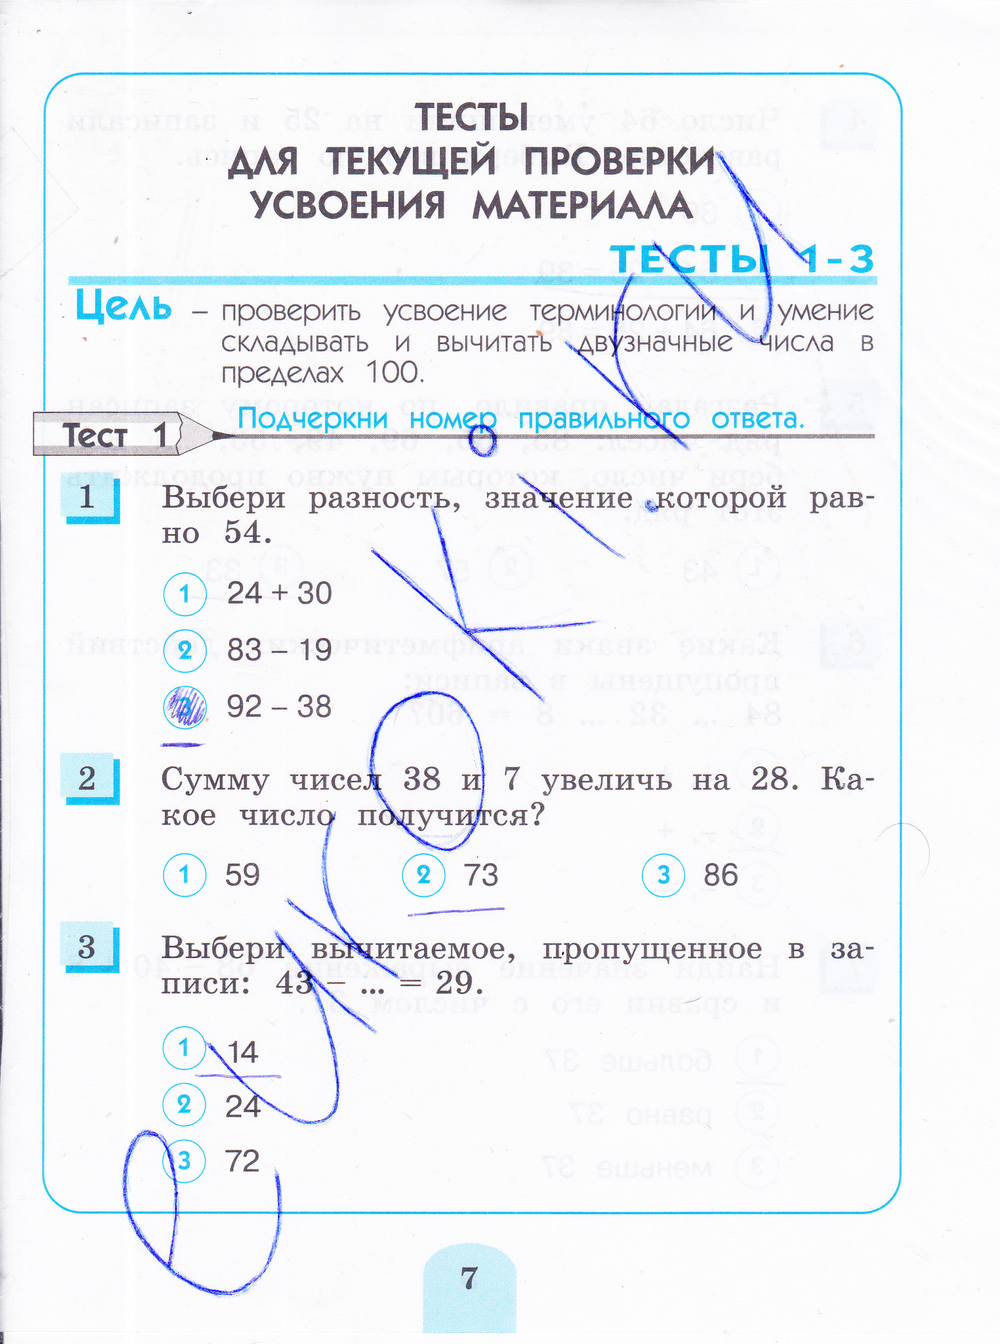 ТЕСТЫ
ДЛЯ ТЕКУЩЕЙ ПРОВЕРКИ
УСВОЕНИЯ МАТЕРИАЛА
ТЕСТЫ 1-3
Цель – проверить усвоение терминологии и умение
складывать и вычитать двузначные числа в
пределах 100.
Тест 1 Подчеркни номер правильного ответа.
1 Выбери разность, значение которой рав-
но 54.
1 24 + 30
2 83 – 19
3 92 – 38
2 Сумму чисел 38 и 7 увеличь на 28. Ка-
кое число получится?
1 59 2 73 3 86
3 Выбери вычитаемое, пропущенное в за-
писи: 43 – ... = 29.
1 14
2 24
3 72
7